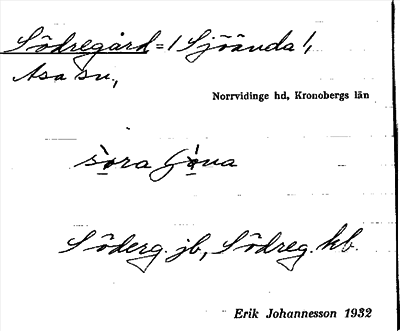 Södregård = / Sjöända /,
Asa sn,
Norrvidinge hd, Kronobergs län
Söderg. jb, Södreg. kb.
Erik Johannesson 1932